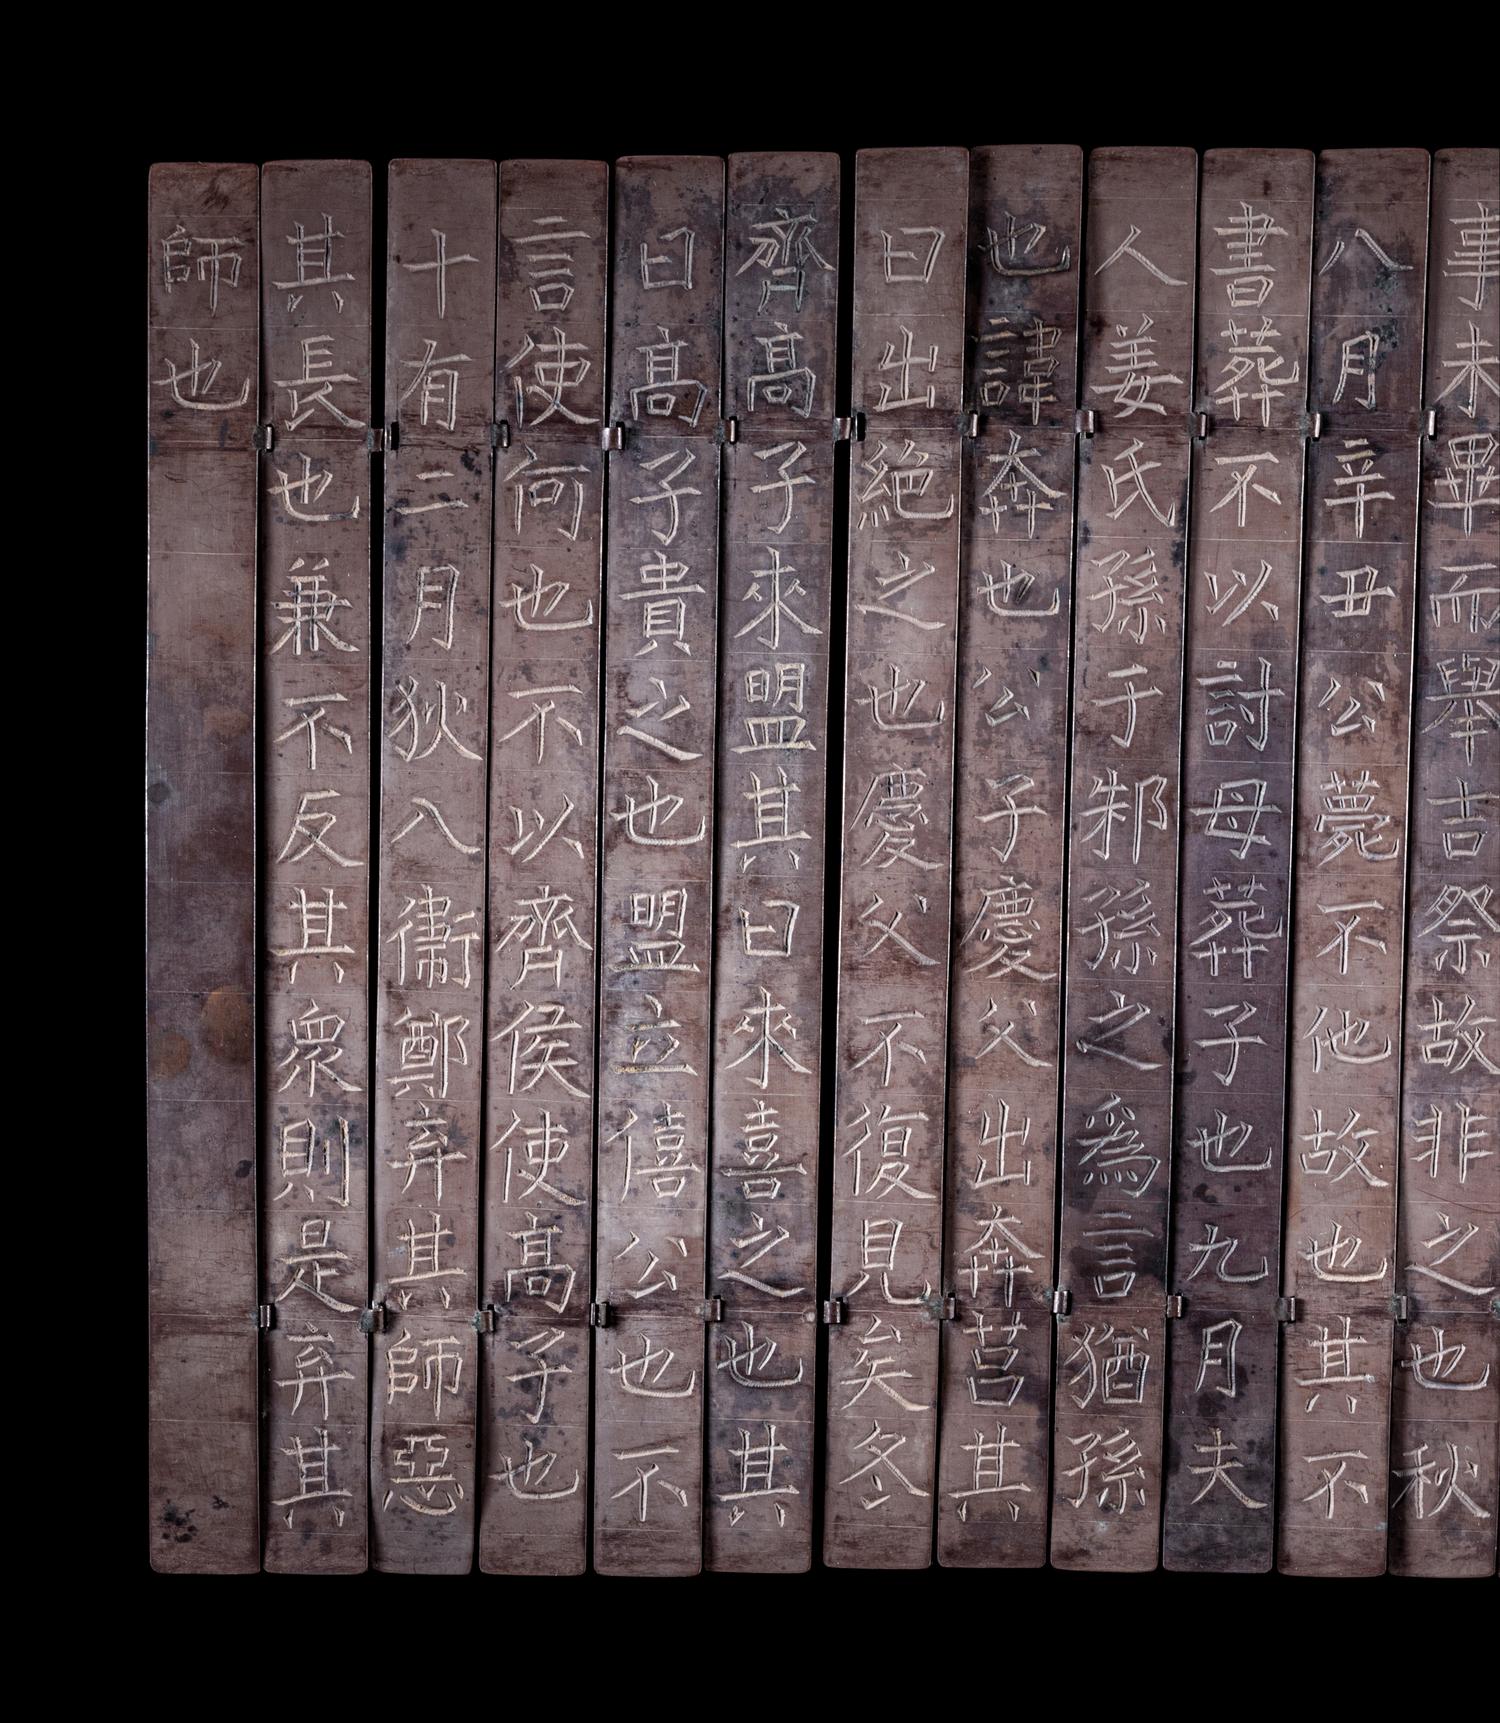 事未畢而舉吉祭故非之也秋
八月辛丑公薨不他故也其不
書葬不以討母葬子也九月夫
人姜氏孫于邾孫之為言猶孫
也諱奔也公子慶父出奔莒其
曰出絕之也慶父不復見矣冬
齊高子來盟其曰來喜之也其
曰高子貴之也盟立僖公也不
言使何也不以齊侯使高子也
十有二月狄八衛鄭弃其師惡
其長也兼不反其眾則是弃其
師也